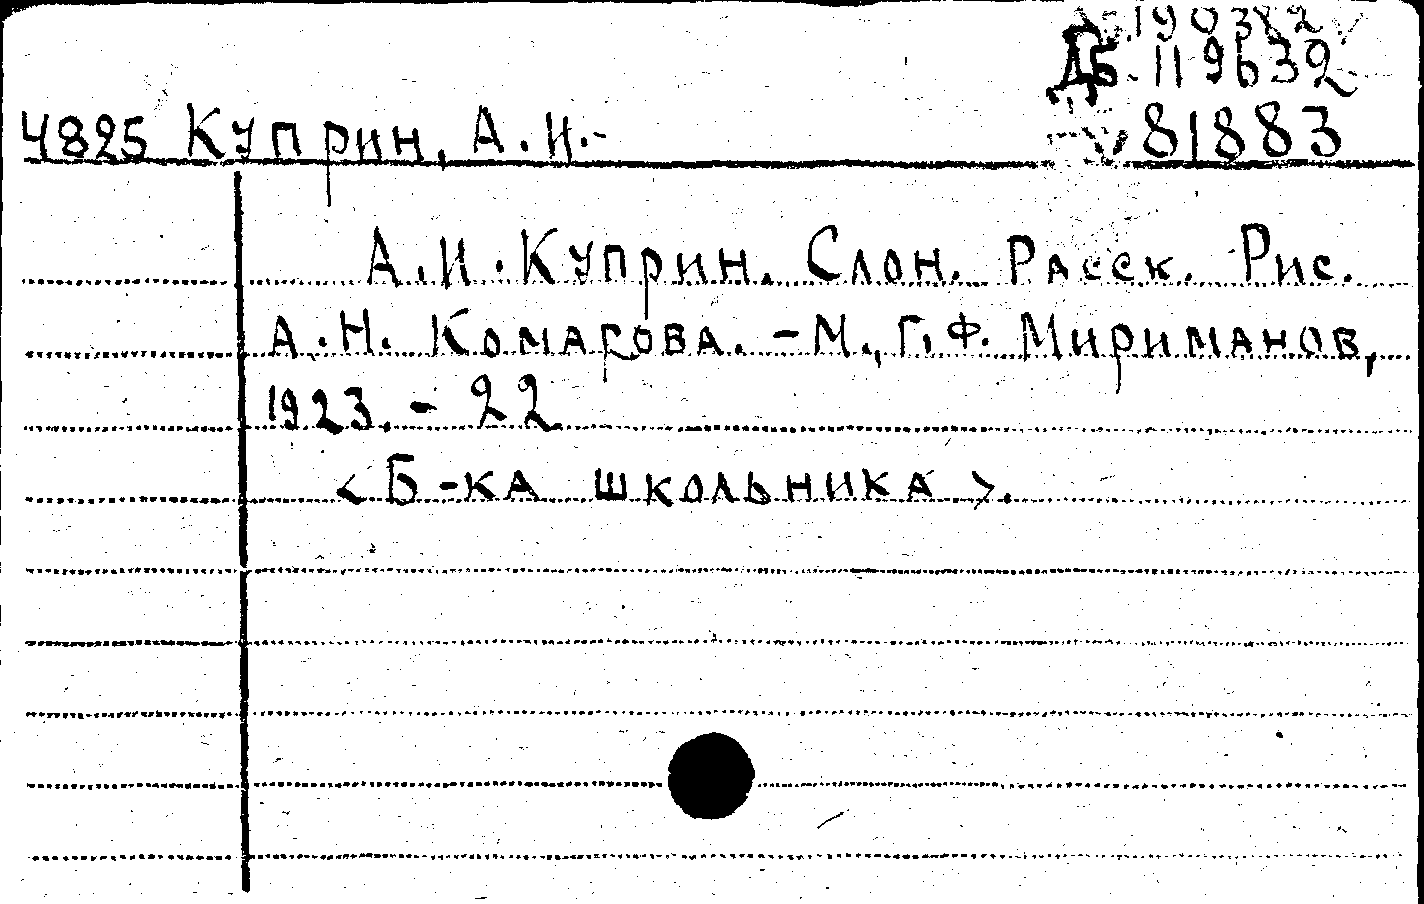 190382
Дб. 119632
81883
4825 Куприн, А. И.-
А. И. Куприн. Слон. Расск. Рис.
А. Н. Комарова. - М., Г. Ф. Мириманов,
1923. - 22
<Б-ка школьника>.